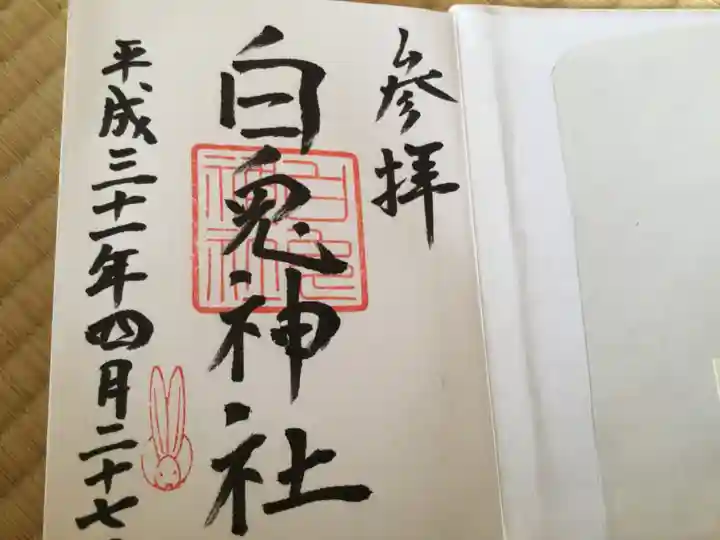 参拝
白兎神社
白兎
神社
平成三十一年四月二十七